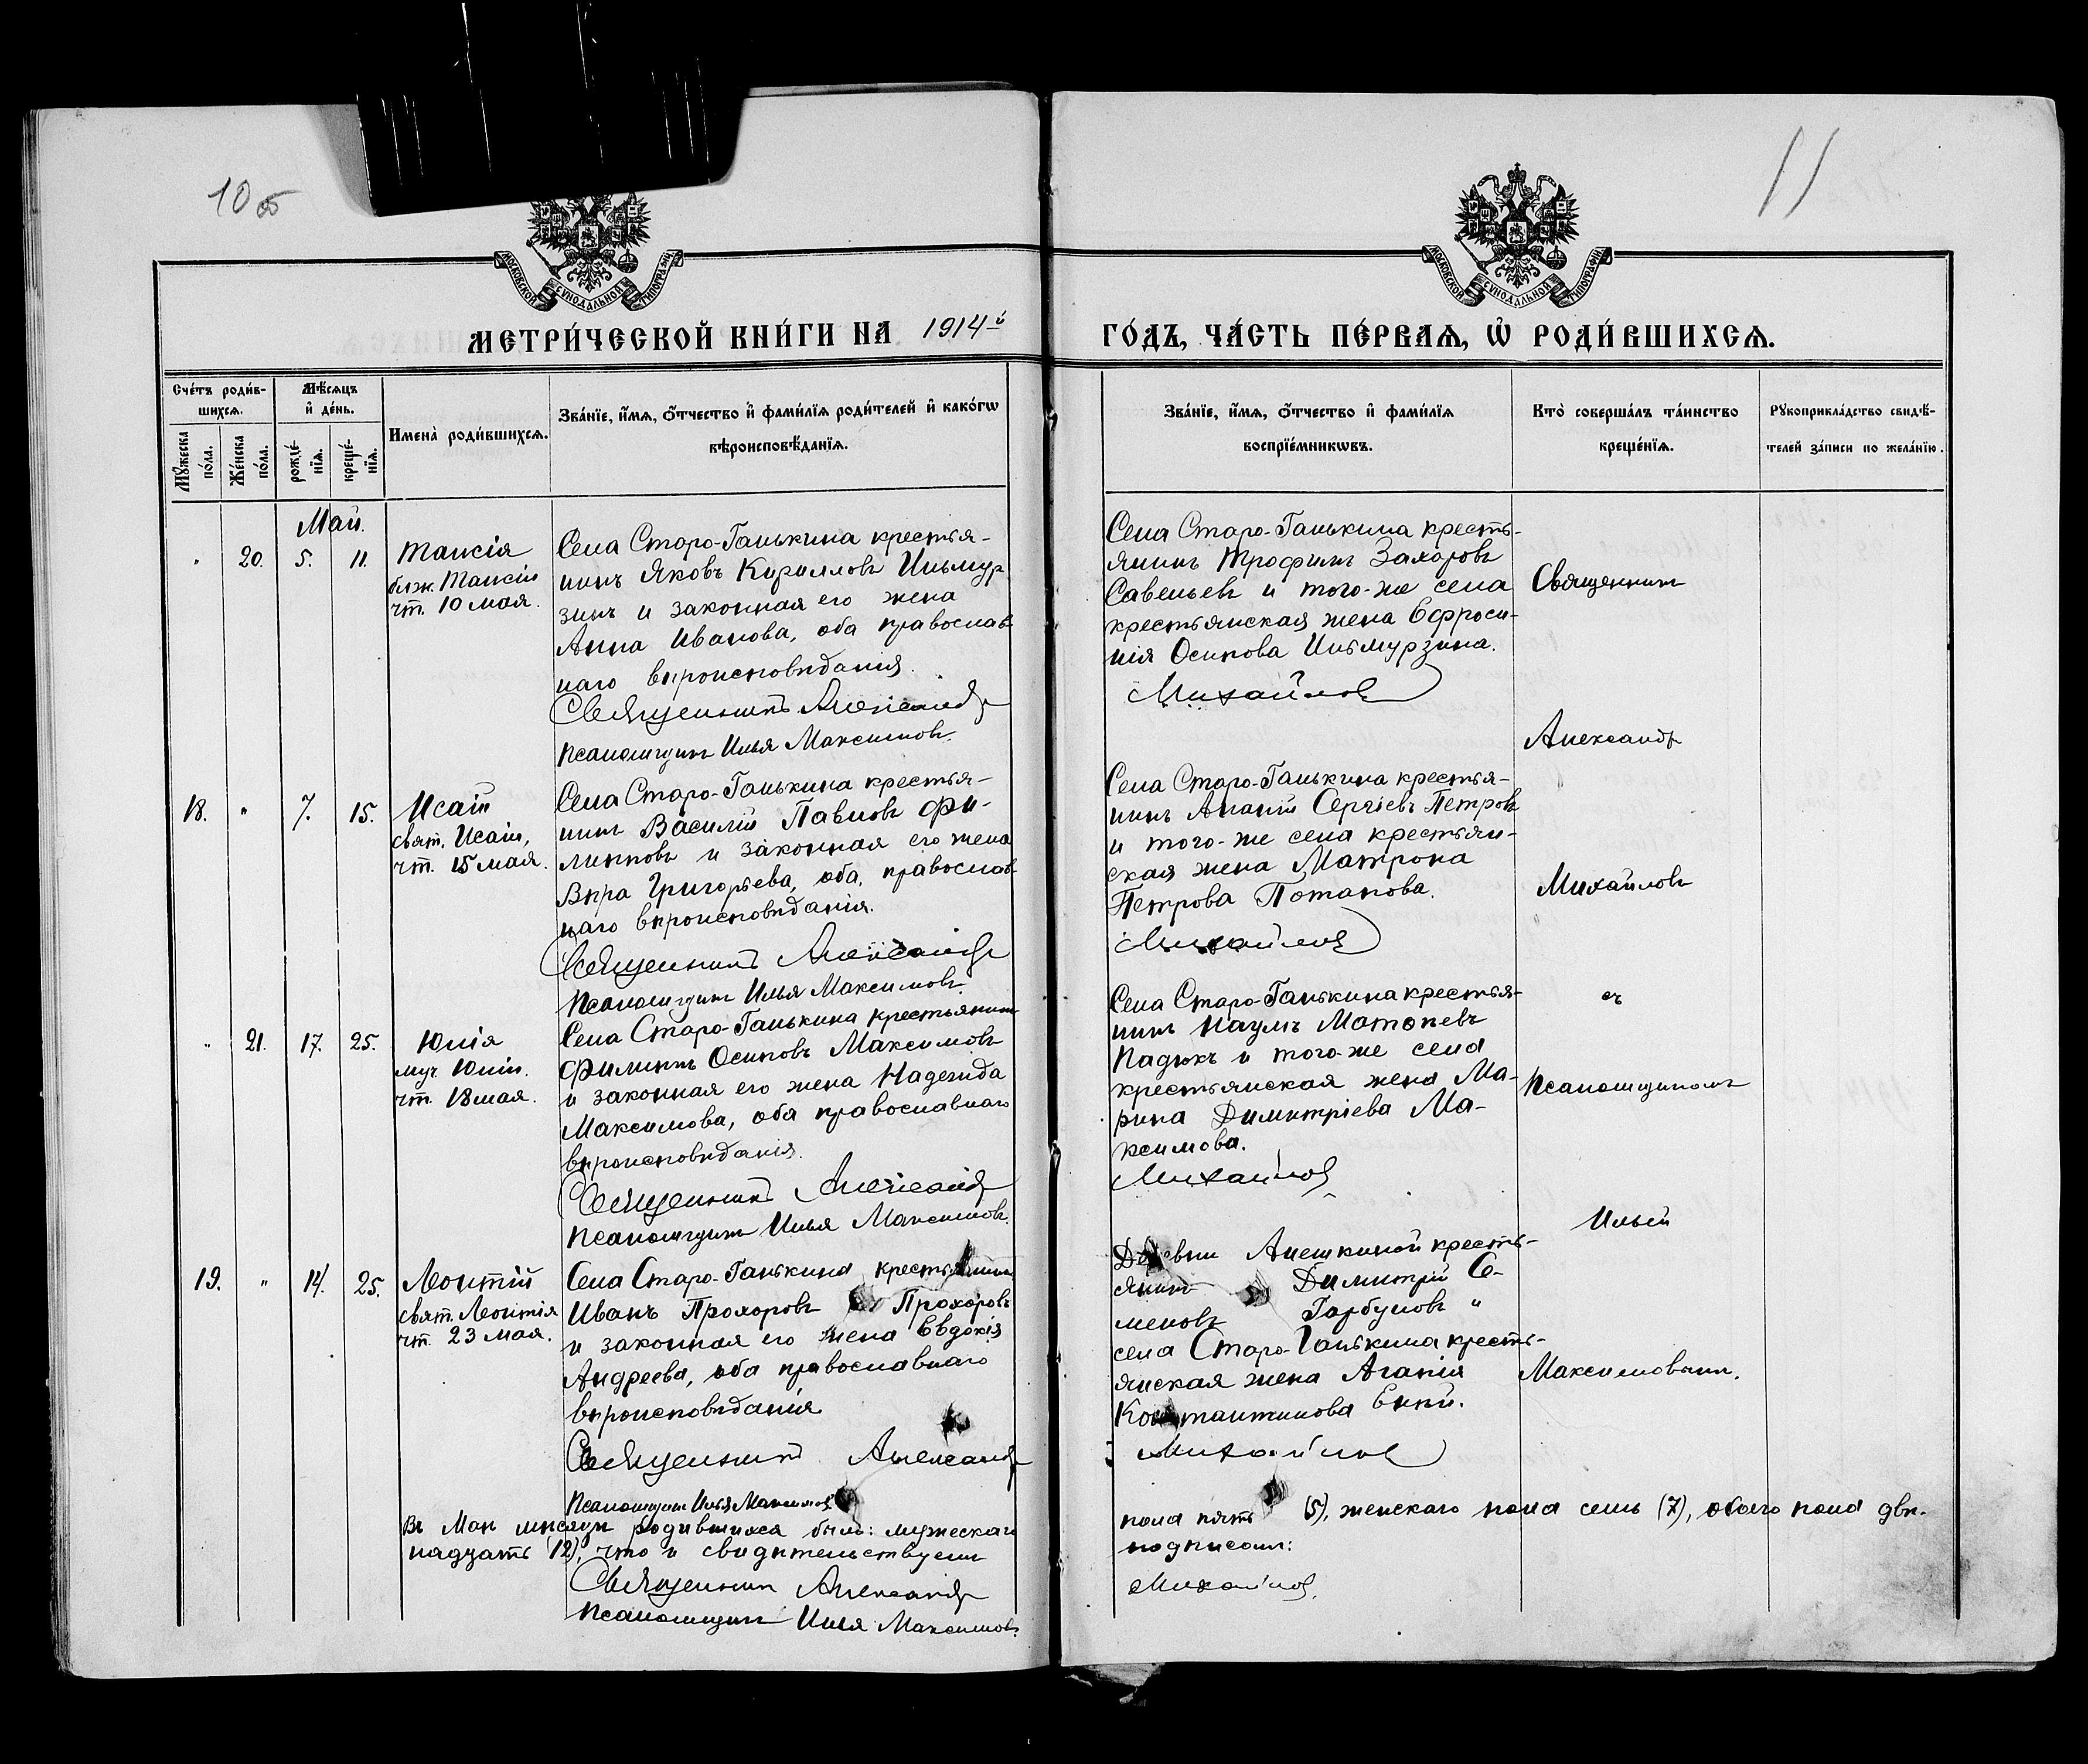 10 об
11
МОСКОВСКОЙ СѴНОДАЛЬНОЙ ТИПОГРАФІИ
МОСКОВСКОЙ СѴНОДАЛЬНОЙ ТИПОГРАФІИ
МЕТРИ́ЧЕСКОЙ КНИ́ГИ НА 1914-й
ГО́ДЪ, ЧА́СТЬ ПЕ́РВАѦ, Ѡ҆ РОДИ́ВШИХСѦ.
Сче́тъ роди́в-
шихсѧ.
Мꙋ́жеска по́ла.
Же́нска по́ла.
Мѣ́сѧцъ
и҆ де́нь.
рожде́-
нїѧ.
креще́-
нїѧ.
Имена̀ роди́вшихсѧ.
Зва́нїе, и҆́мѧ, ѻ҆́тчество и҆ фами́лїѧ роди́телей и҆ како́гѡ
вѣроисповѣ́данїѧ.
Зва́нїе, и҆́мѧ, ѻ҆́тчество и҆ фами́лїѧ
воспрїе́мникѡвъ.
Кто̀ соверша́лъ та́инство
креще́нїѧ.
Рꙋкоприкла́дство свидѣ́-
телей за́писи по жела́нїю.
Май.
" 20. 5. 11. Таисія
блж. Таисіи
чт. 10 мая.
Села Старо-Ганькина крестья-
нинъ Яковъ Кирилловъ Иньмур
зинъ и законная его жена
Анна Иванова, оба православ
наго вѣроисповѣданія.
Священникъ Александр
Псаломщикъ Илья Максимовъ.
Села Старо-Ганькина кресть-
янинъ Трофимъ Захаровъ
Савельевъ и того-же села
крестьянская жена Ефроси-
нія Осипова Иньмурзина.
Михайлов
Священникъ
Александръ
Михайловъ
съ
Псаломщикомъ
Ильей
Максимовымъ.
18. " 7. 15. Исаія
свят. Исаіи,
чт. 15 мая.
Села Старо-Ганькина крестья-
нинъ Василій Павловъ Фи-
липповъ и законная его жена
Вѣра Григорьева, оба православ
наго вѣроисповѣданія.
Священникъ Александр
Псаломщикъ Илья Максимовъ.
Села Старо-Ганькина крестья-
нинъ Ананій Сергіевъ Петровъ
и того-же села крестьян-
ская жена Матрона
Петрова Потапова.
Михайлов
" 21. 17. 25. Юлія
муч. Юліи.
чт. 18 мая.
Села Старо-Ганькина крестьянинъ
Филиппъ Осиповъ Максимовъ
и законная его жена Надежда
Максимова, оба православнаго
вѣроисповѣданія.
Священникъ Александр
Псаломщикъ Илья Максимовъ.
Села Старо-Ганькина крестья-
нинъ Наумъ
и того-же села
крестьянская жена Ма-
рина Димитріева Ма-
ксимова.
Михайлов
19. " 14. 25. Леонтій
свят. Леонтія
чт. 23 мая.
Села Старо-Ганькина крестьянинъ
Иванъ Прохоровъ Прохоровъ
и законная его жена Евдокія
Андреева, оба православнаго
вѣроисповѣданія.
Священникъ Александр
Псаломщикъ Илья Максимовъ
Деревни Алешкиной кресть-
янинъ Димитрій Се-
меновъ Горбуновъ "
села Старо-Ганькина кресть-
янская жена Агапія
Константинова
Михайлов
Въ Маѣ мѣсяцѣ родившихся было: мужескаго
пола пять (5), женскаго пола семь (7), обоего пола две-
надцать (12), что и свидѣтельствуемъ
подписомъ:
Священникъ Александр
Михайлов.
Псаломщикъ Илья Максимовъ.